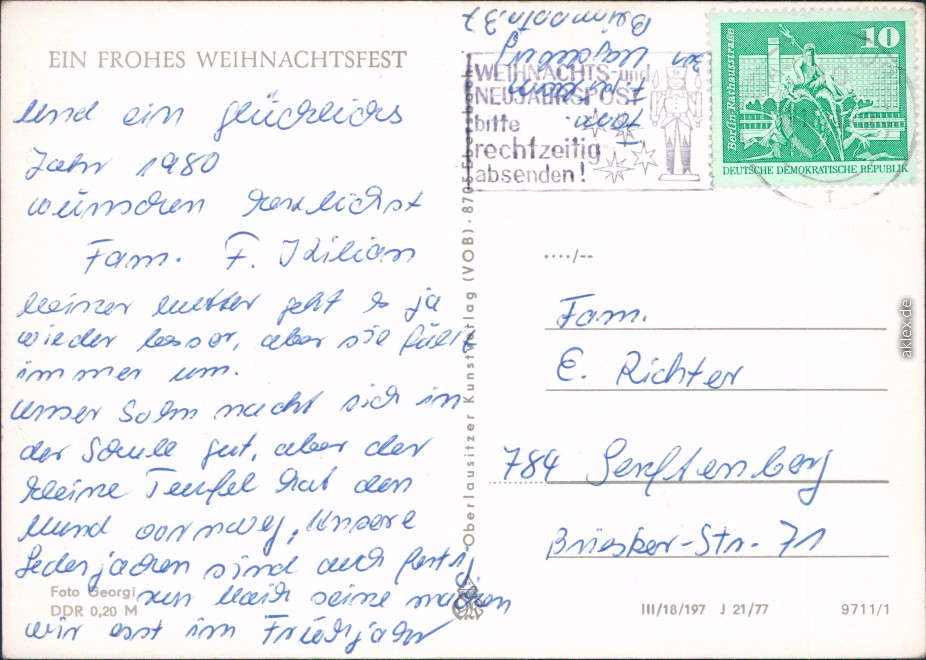 EIN FROHES WEIHNACHTSFEST
und ein glückliches
Jahr 1980
wünschen herzlichst
Fam. F. Kilian
Meiner Mutter geht es ja
wieder besser, aber sie fällt
immer um.
Unser Sohn macht sich in
der Schule gut, aber der
kleine Teufel hat den
Mund vorneweg, Unsere
Lederjacken sind auch fertig
seine machen
wir erst im Frühjahr
Foto Georgi
DDR 0,20 M
Oberlausitzer Kunstverlag (VOB) · 8705 Ebersbach
WEIHNACHTS- und
NEUJAHRSPOST
bitte
rechtzeitig
absenden!
10
Berlin-Rathausstraße
DEUTSCHE DEMOKRATISCHE REPUBLIK
..../--
Fam.
E. Richter
784 Senftenberg
Briesker-Str. 71
III/18/197 J 21/77
9711/1
aklex.de